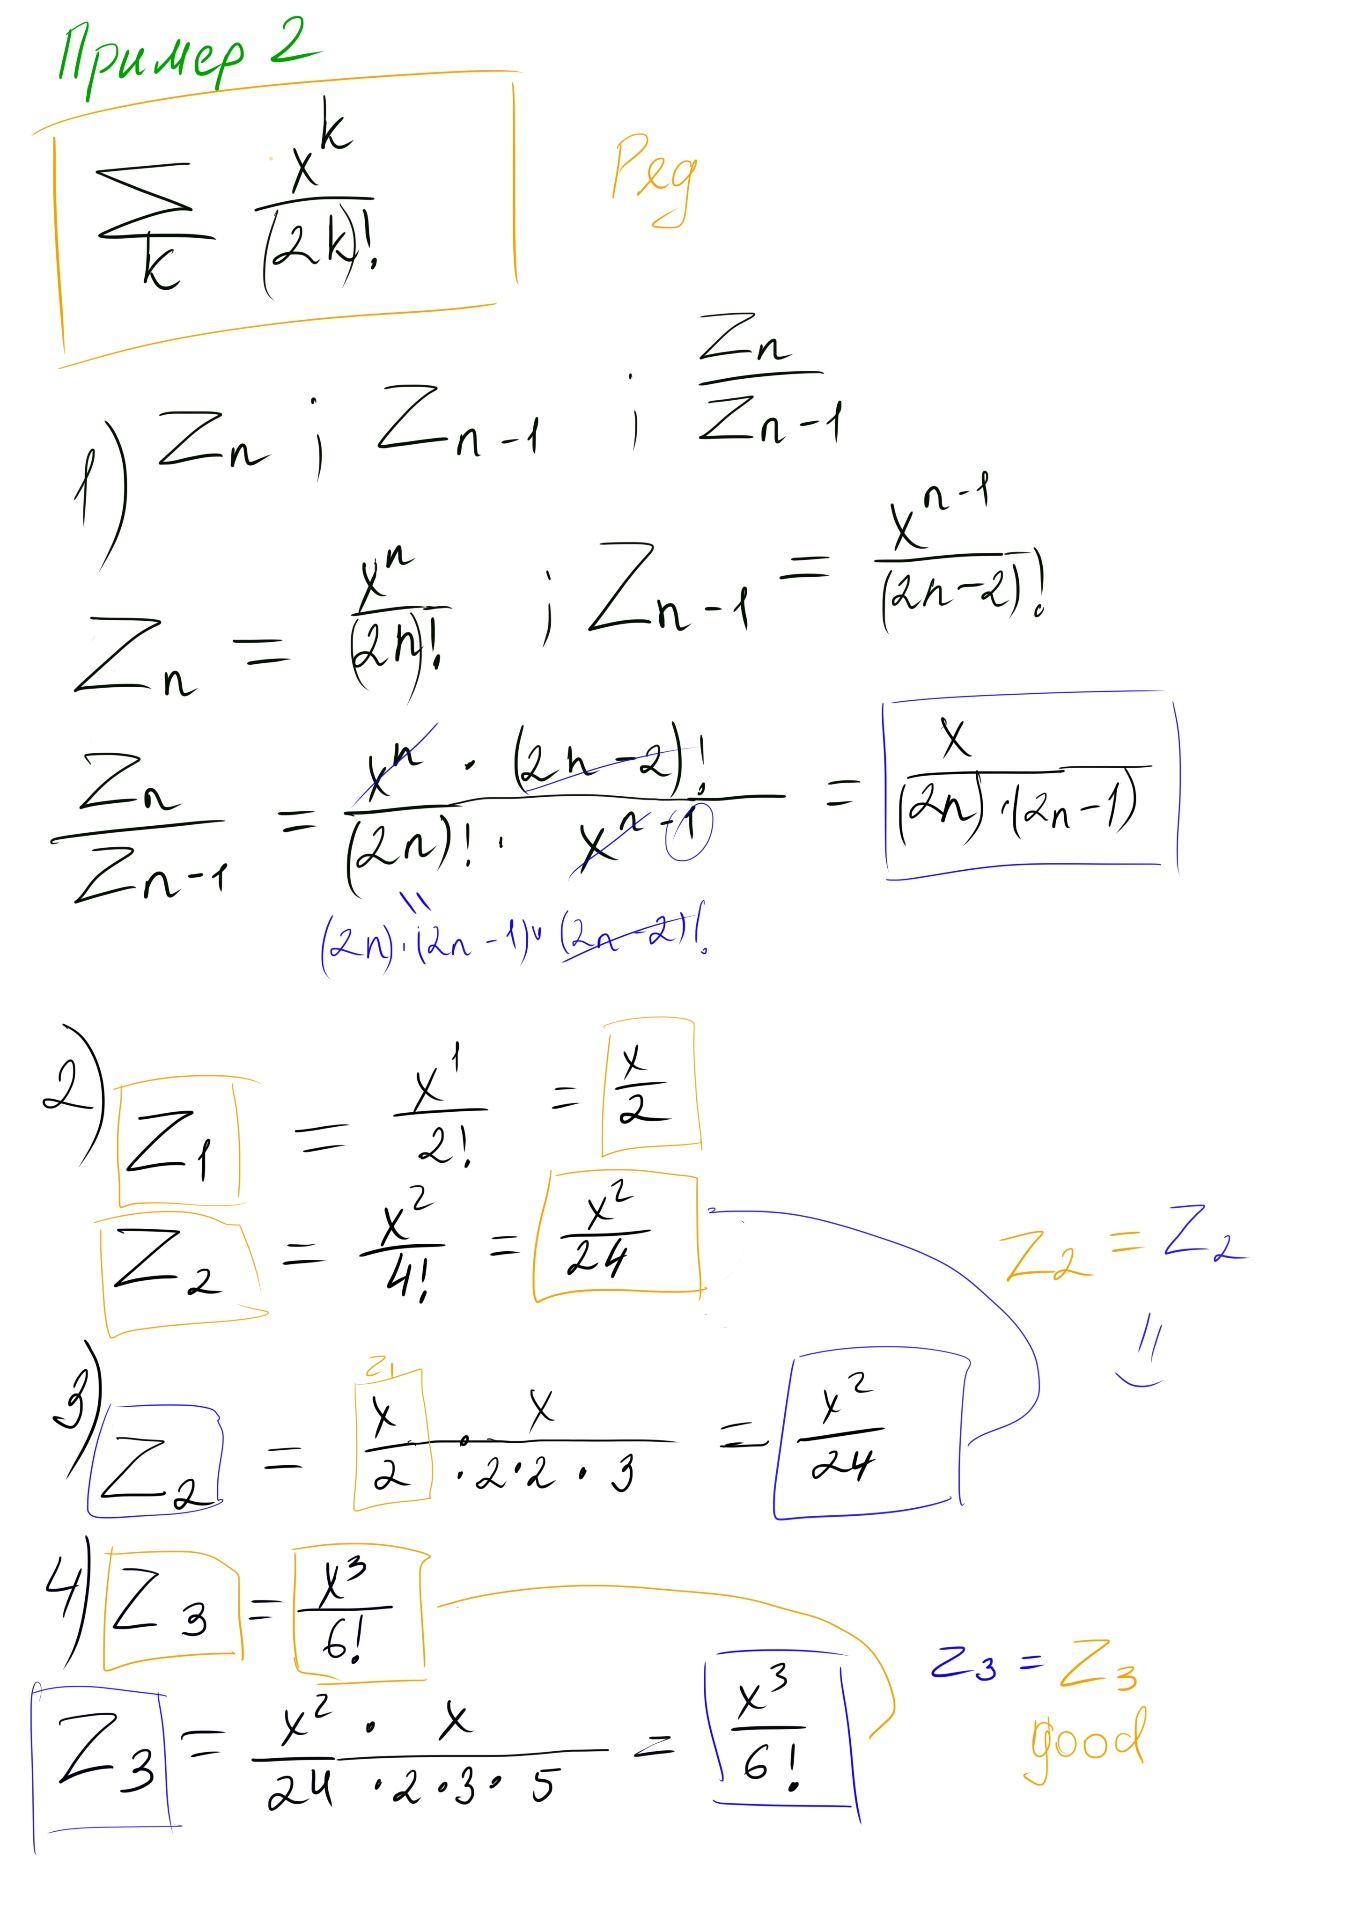 Пример 2
∑_k x^k / (2k)!
Ряд
1) Z_n ; Z_{n-1} ; Z_n / Z_{n-1}
Z_n = x^n / (2n)! ; Z_{n-1} = x^{n-1} / (2n-2)!
Z_n / Z_{n-1} = x^n · (2n-2)! / (2n)! · x^{n-1} = x / (2n)·(2n-1)
(2n)·(2n-1)·(2n-2)!
2) Z_1 = x^1 / 2! = x / 2
Z_2 = x^2 / 4! = x^2 / 24
Z_2 = Z_2
Z_1
3) Z_2 = x / 2 · x / ·2·2·3 = x^2 / 24
4) Z_3 = x^3 / 6!
Z_3 = Z_3
good
Z_3 = x^2 · x / 24 ·2·3·5 = x^3 / 6!